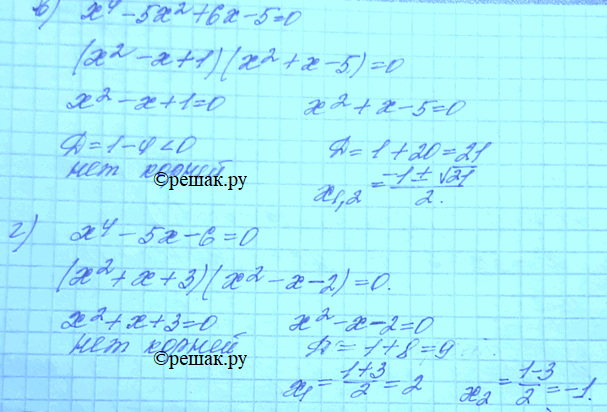 в) x⁴ - 5x² + 6x - 5 = 0
(x² - x + 1)(x² + x - 5) = 0
x² - x + 1 = 0 x² + x - 5 = 0
D = 1 - 4 < 0 D = 1 + 20 = 21
нет корней x₁,₂ = (-1 ± √21)/2.
©решак.ру
г) x⁴ - 5x - 6 = 0
(x² + x + 3)(x² - x - 2) = 0.
x² + x + 3 = 0 x² - x - 2 = 0
нет корней D = 1 + 8 = 9
©решак.ру
x₁ = (1+3)/2 = 2 x₂ = (1-3)/2 = -1.